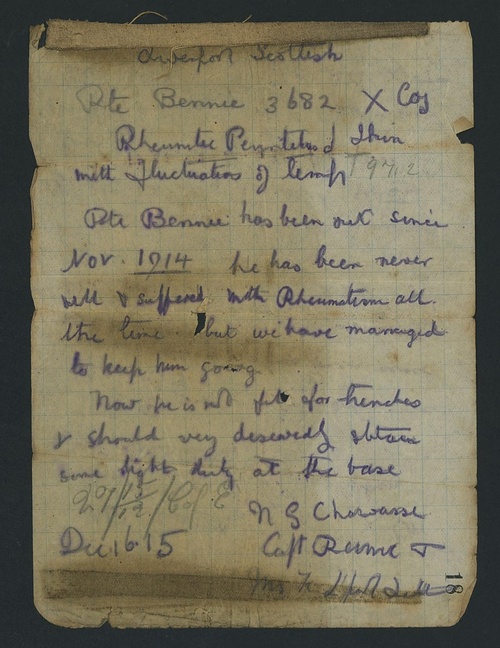 Liverpool Scottish
Pte Bennie 3682 X Coy
Rheumatic Periostitis of Skin
with Fluctuations of temp
Pte Bennie has been out since
Nov. 1914 he has been never
well & suffered with Rheumatism all
the time. but we have managed
to keep him going
Now he is not fit for trenches
& should very deservedly obtain
some light duty at the base
N G Chavasse
Dec 16 15 Capt RAMC T
18